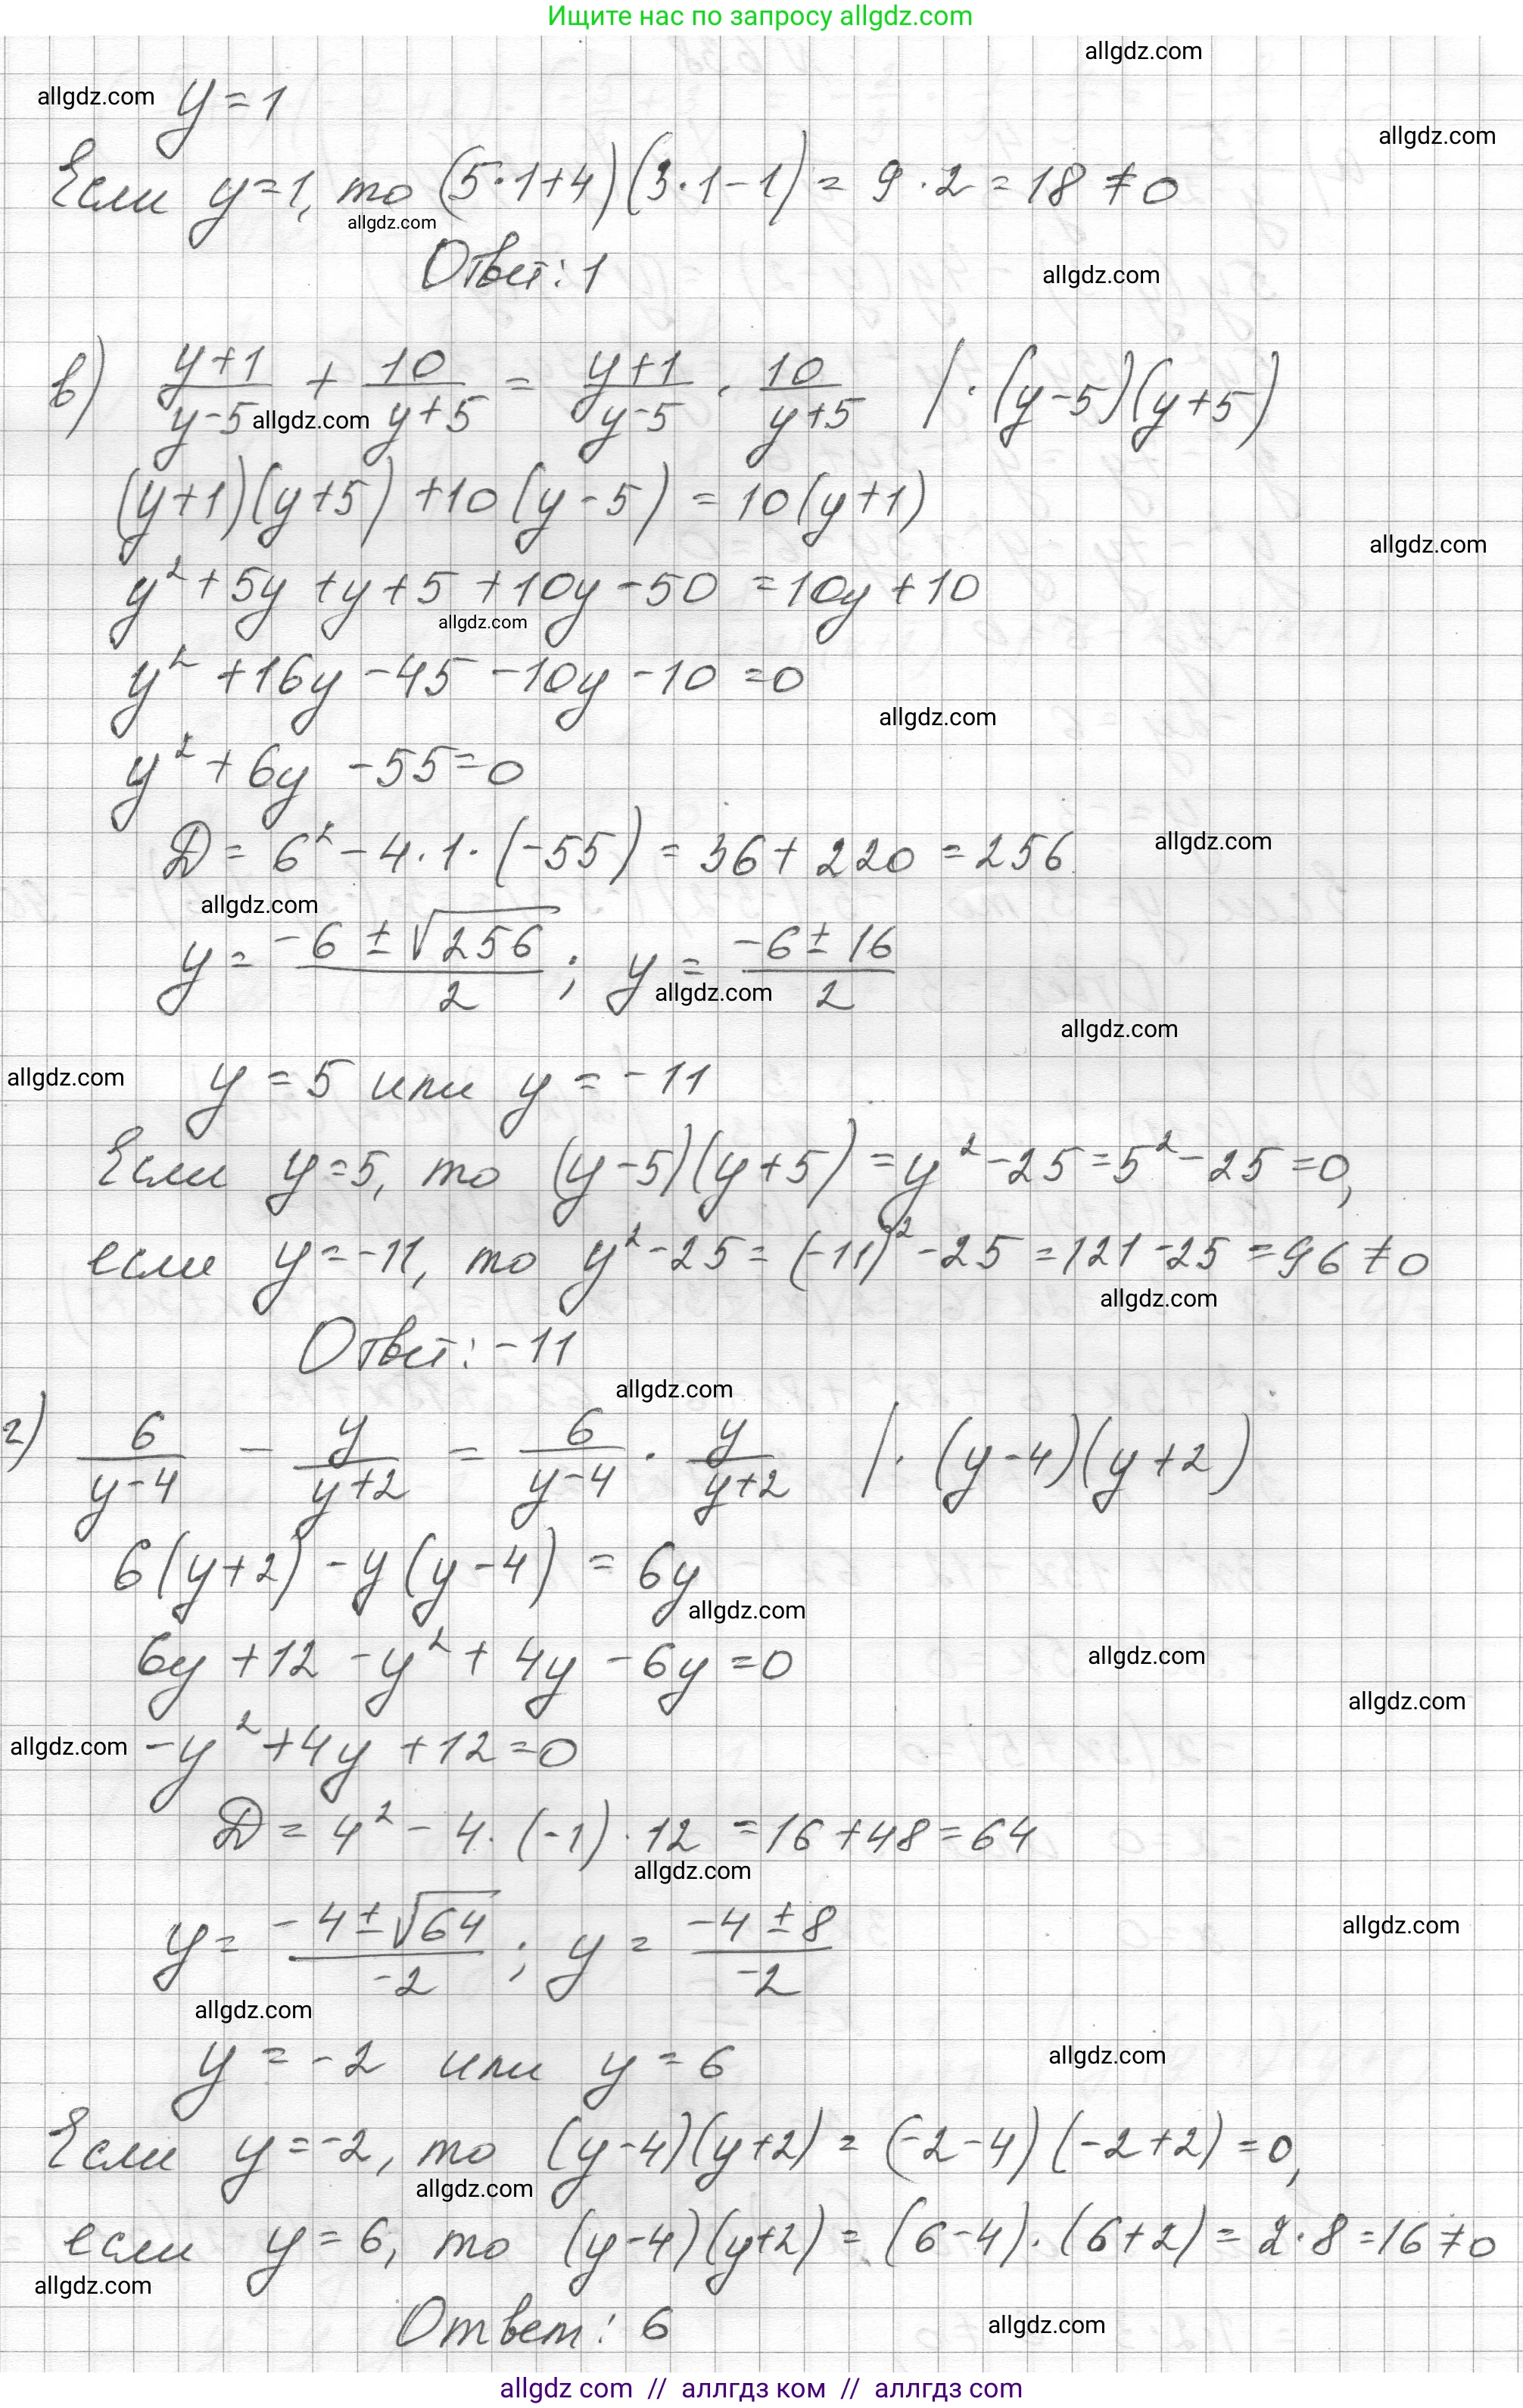 Ищите нас по запросу allgdz.com
allgdz.com
allgdz.com y = 1
allgdz.com
Если y=1, то (5·1+4)(3·1-1) = 9·2 = 18 ≠ 0
allgdz.com
Ответ: 1
allgdz.com
в) (y+1)/(y-5) + 10/(y+5) = (y+1)/(y-5) · 10/(y+5) | ·(y-5)(y+5)
allgdz.com
(y+1)(y+5) + 10(y-5) = 10(y+1)
allgdz.com
y² + 5y + y + 5 + 10y - 50 = 10y + 10
allgdz.com
y² + 16y - 45 - 10y - 10 = 0
allgdz.com
y² + 6y - 55 = 0
D = 6² - 4·1·(-55) = 36 + 220 = 256
allgdz.com
allgdz.com
y = (-6 ± √256)/2 ; y = (-6 ± 16)/2
allgdz.com
allgdz.com
allgdz.com y = 5 или y = -11
Если y=5, то (y-5)(y+5) = y² - 25 = 5² - 25 = 0,
если y = -11, то y² - 25 = (-11)² - 25 = 121 - 25 = 96 ≠ 0
allgdz.com
Ответ: -11
allgdz.com
г) 6/(y-4) - y/(y+2) = 6/(y-4) · y/(y+2) | ·(y-4)(y+2)
6(y+2) - y(y-4) = 6y
allgdz.com
6y + 12 - y² + 4y - 6y = 0
allgdz.com
allgdz.com
allgdz.com -y² + 4y + 12 = 0
D = 4² - 4·(-1)·12 = 16 + 48 = 64
allgdz.com
y = (-4 ± √64)/-2 ; y = (-4 ± 8)/-2
allgdz.com
allgdz.com
y = -2 или y = 6
allgdz.com
Если y = -2, то (y-4)(y+2) = (-2-4)(-2+2) = 0,
allgdz.com
если y = 6, то (y-4)(y+2) = (6-4)·(6+2) = 2·8 = 16 ≠ 0
allgdz.com
Ответ: 6
allgdz.com
allgdz com // аллгдз ком // аллгдз com